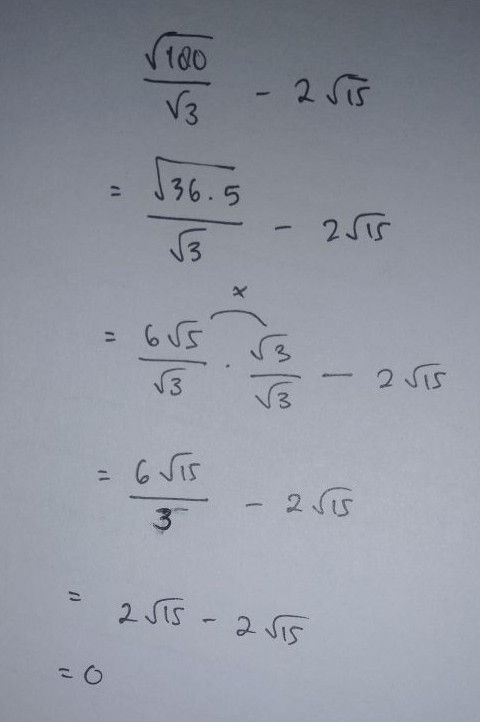 √180/√3 - 2√15
= √36.5/√3 - 2√15
x
= 6√5/√3 . √3/√3 - 2√15
= 6√15/3 - 2√15
= 2√15 - 2√15
= 0